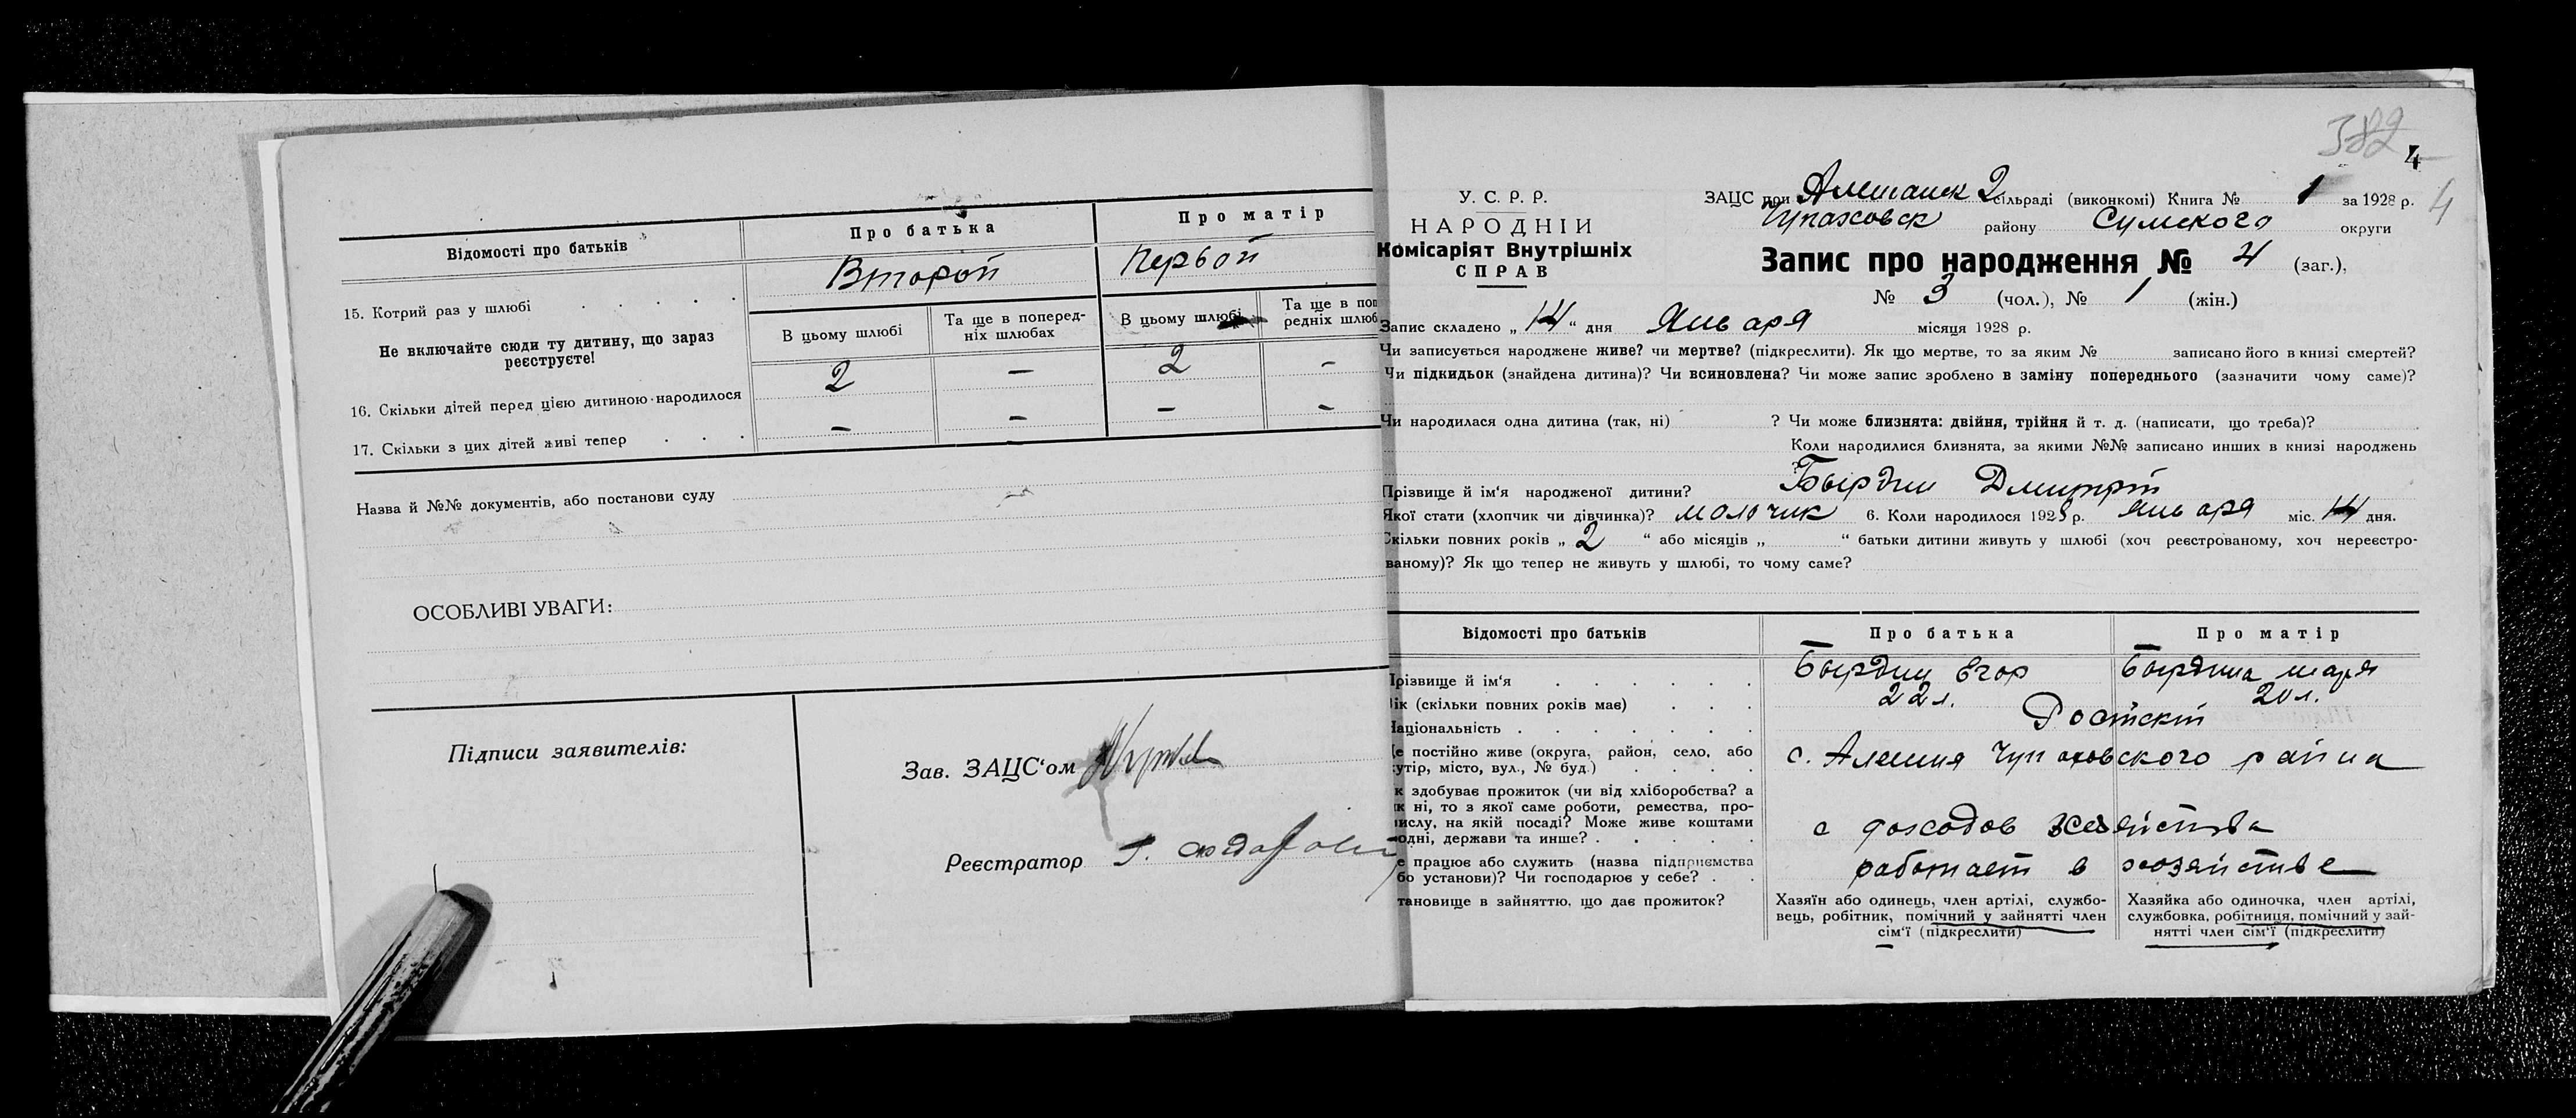 Відомості про батьків
Про батька
Про матір
15. Котрий раз у шлюбі
Второй
Первой
Не включайте сюди ту дитину, що зараз
реєструєте!
В цьому шлюбі
Та ще в поперед-
ніх шлюбах
В цьому шлюбі
Та ще в поп
редніх шлюб
16. Скільки дітей перед цією дитиною народилося
2 — 2 -
17. Скільки з цих дітей живі тепер
— — — -
Назва й №№ документів, або постанови суду —
ОСОБЛИВІ УВАГИ:
Підписи заявителів:
Зав. ЗАЦС‘ом
Реєстратор
382
4
4
У. С. Р. Р.
НАРОДНІЙ
Комісаріят Внутрішніх
СПРАВ
ЗАЦС при Алешанск 2 сільраді (виконкомі) Книга № 1 за 1928 р.
Чупаховск району Сумского округи
Запис про народження № 4 (заг.),
№ 3 (чол.), № 1 (жін.)
Запис складено „ 14 “ дня Января місяця 1928 р.
Чи записується народжене живе? чи мертве? (підкреслити). Як що мертве, то за яким № записано його в книзі смертей?
Чи підкидьок (знайдена дитина)? Чи всиновлена? Чи може запис зроблено в заміну попереднього (зазначити чому саме)?
Чи народилася одна дитина (так, ні) ? Чи може близнята: двійня, трійня й т. д. (написати, що треба)?
Коли народилися близнята, за якими №№ записано инших в книзі народжень
?
Прізвище й ім‘я народженої дитини? Бырдин Дмитрт
Якої стати (хлопчик чи дівчинка)? мольчик 6. Коли народилося 1928 р. Января міс. 14 дня.
Скільки повних років „ 2 “ або місяців „ “ батьки дитини живуть у шлюбі (хоч реєстрованому, хоч нереєстро-
ваному)? Як що тепер не живуть у шлюбі, то чому саме?
Відомості про батьків
Про батька
Про матір
Прізвище й ім‘я
Бырдин Егор
Бырдина Мария
Вік (скільки повних років має)
22 л.
20 л.
Національність
Де постійно живе (округа, район, село, або
хутір, місто, вул., № буд.)
с. Алешня Чупаховского района
к здобуває прожиток (чи від хліборобства? а
як ні, то з якої саме роботи, ремества, про-
мислу, на якій посаді? Може живе коштами
родні, держави та инше?
с доходов хозяйства
е працює або служить (назва підприємства
бо установи)? Чи господарює у себе?
работает в хозяйстве
тановище в зайняттю, що дає прожиток?
Хазяїн або одинець, член артілі, службо-
вець, робітник, помічний у зайнятті член
сім‘ї (підкреслити)
Хазяйка або одиночка, член артілі,
службовка, робітниця, помічний у зай-
нятті член сім‘ї (підкреслити)